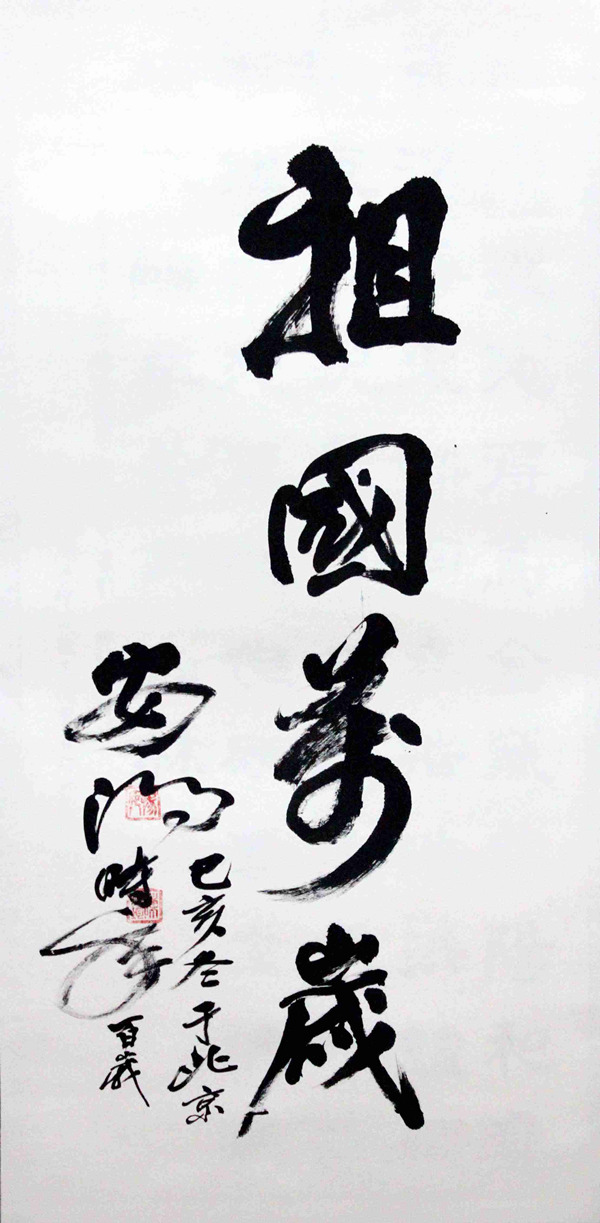 祖國萬歲
己亥冬于北京
安
時年
百歲